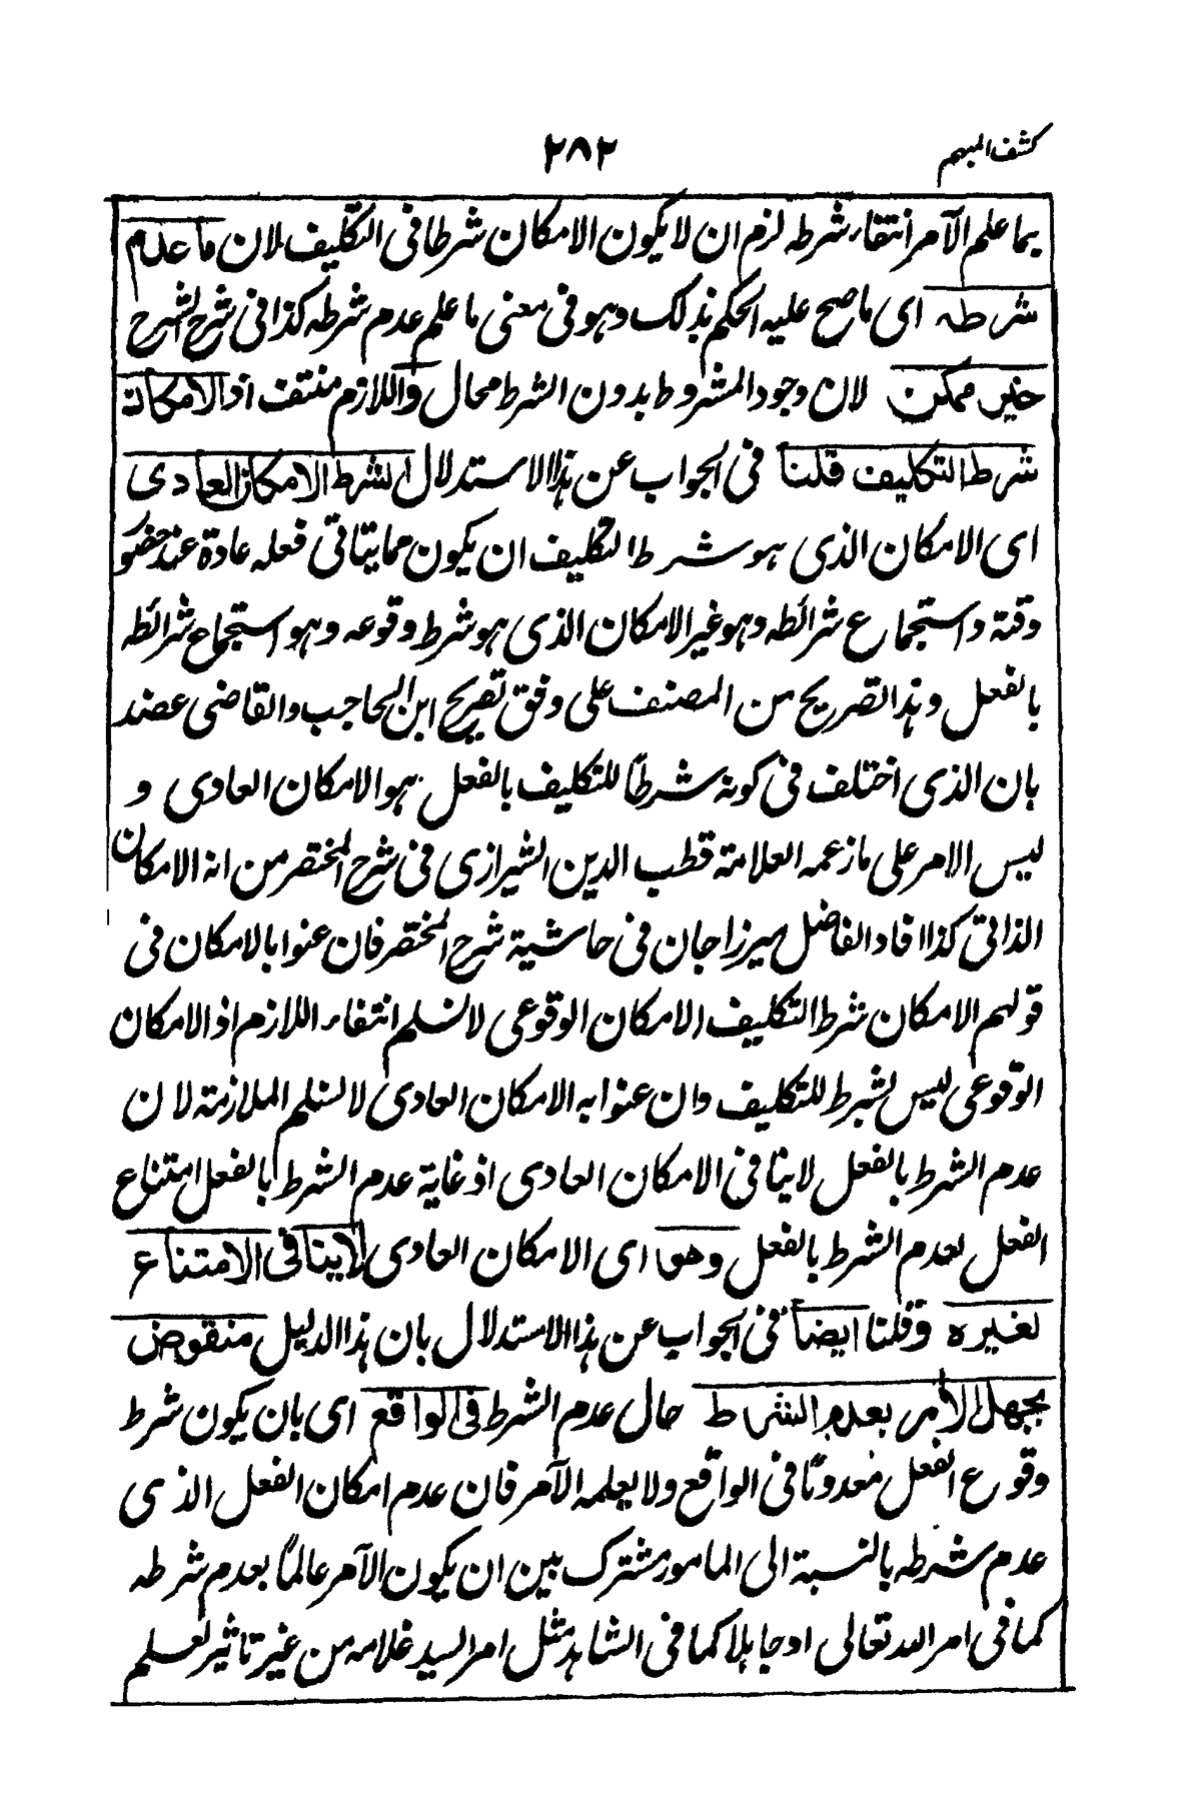 كشف المبهم
٢٨٢
بما علم الآمر انتفاء شرطه لزم ان لا يكون الامكان شرطا فى التكليف لان ما عدم
شرطه اى ما صح عليه الحكم بذلك وهو فى معنى ما علم عدم شرطه كذا فى شرح الشرح
غير ممكن لان وجود المشروط بدون الشرط محال واللازم منتف اذ الامكان
شرط التكليف قلنا فى الجواب عن هذا الاستدلال الشرط الامكان العادى
اى الامكان الذى هو شرط التكليف ان يكون مما يتاتى فعله عادة عند حضور
وقته واستجماع شرائطه وهو غير الامكان الذى هو شرط وقوعه وهو استجماع شرائطه
بالفعل وهذا تصريح من المصنف على وفق تصريح ابن الحاجب والقاضى عضد
بان الذى اختلف فى كونه شرطاً للتكليف بالفعل هو الامكان العادى و
ليس الامر على ما زعمه العلامة قطب الدين الشيرازى فى شرح المختصر من انه الامكان
الذاتى كذا افاد الفاضل ميرزا جان فى حاشية شرح المختصر فان عنوا بالامكان فى
قولهم الامكان شرط التكليف الامكان الوقوعى لا نسلم انتفاء اللازم اذ الامكان
الوقوعى ليس بشرط للتكليف وان عنوا به الامكان العادى لا نسلم الملازمة لان
عدم الشرط بالفعل لا ينافى الامكان العادى اذ غاية عدم الشرط بالفعل امتناع
الفعل لعدم الشرط بالفعل وهو اى الامكان العادى لا ينافى الامتناع
لغيره وقلنا ايضاً فى الجواب عن هذا الاستدلال بان هذا الدليل منقوض
بجهل الآمر بعدم الشرط حال عدم الشرط فى الواقع اى بان يكون شرط
وقوع الفعل معدوماً فى الواقع ولا يعلمه الآمر فان عدم امكان الفعل الذى
عدم شرطه بالنسبة الى المامور مشترك بين ان يكون الآمر عالماً بعدم شرطه
كما فى امر الله تعالى او جاهلا كما فى الشاهد مثل امر السيد غلامه من غير تاثير لعلم